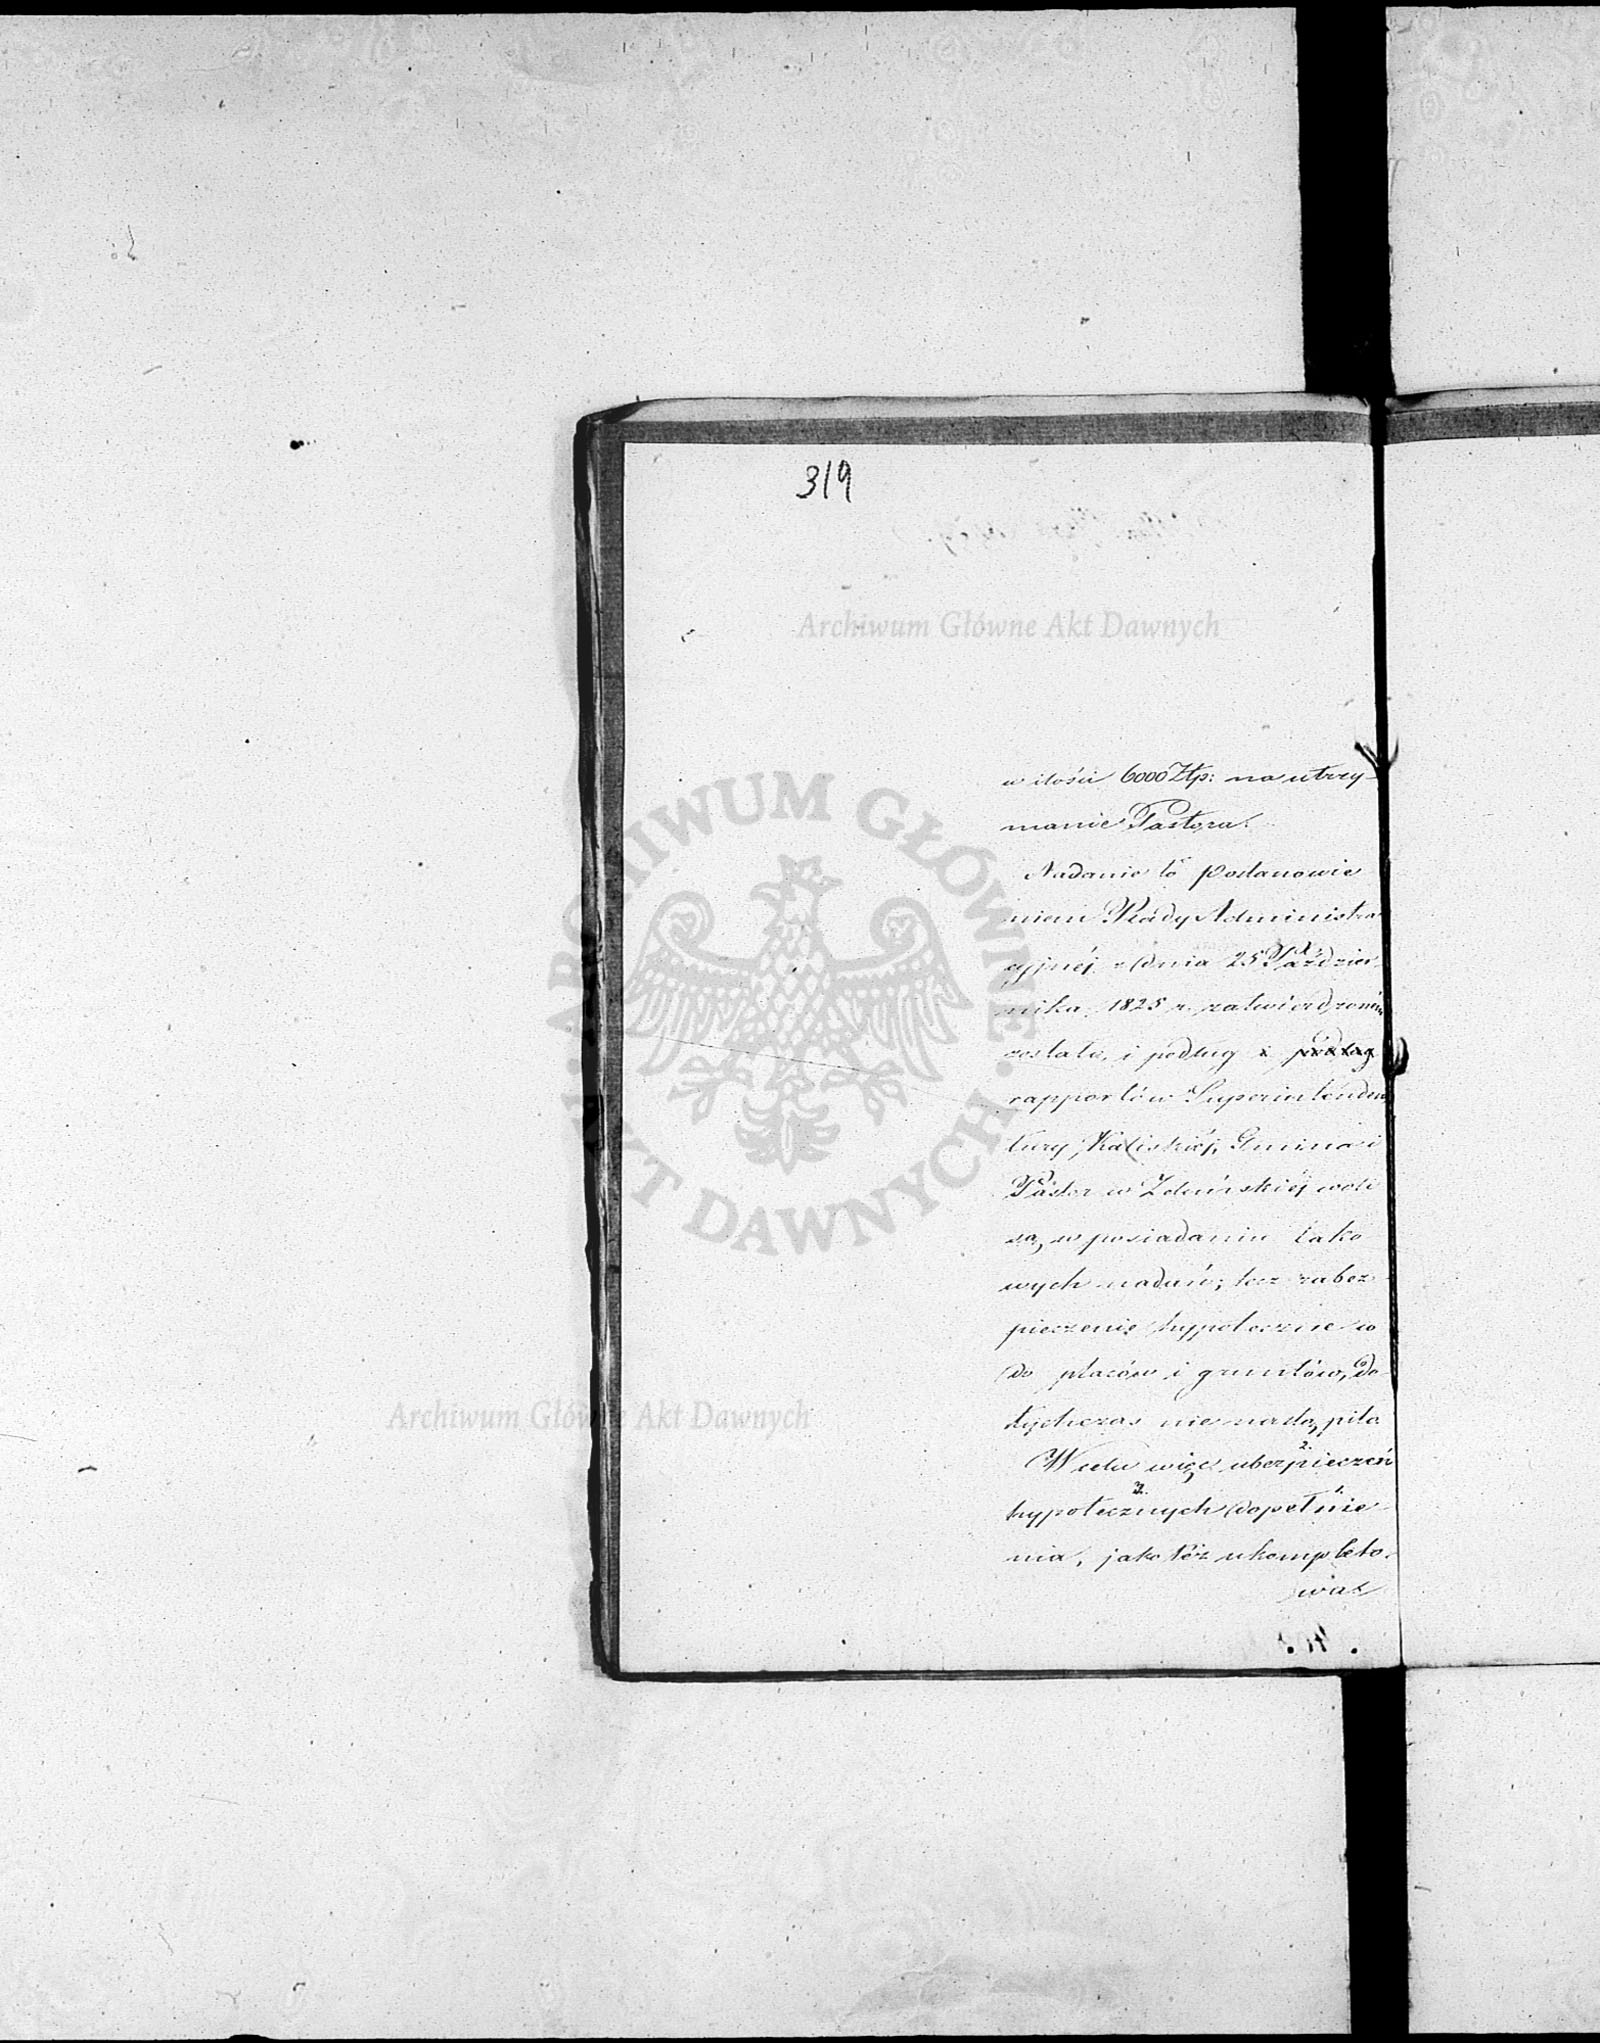 319
Archiwum Główne Akt Dawnych
w ilości 6000 Złp: na utrzy-
manie Pastora.
Nadanie to postanowie
niem Rady Administra
cyjnéj z dnia 25 Paździer-
nika 1825 r. zatwierdzoném
zostało, i podług i podług
rapportów Superintenden
tury Kaliskiéj, Gmina i
Pastor w Zduńskiéj woli
są, w posiadaniu tako
wych nadań; lecz zabez-
pieczenie hypoteczne co
do placów i gruntów, do-
tychczas nie nastąpiło
W celu więc ubezpieczeń
hypotecznych dopełnie-
nia, jako téż ukompleto-
wać
ARCHIWUM GŁÓWNE
AKT DAWNYCH
Archiwum Główne Akt Dawnych